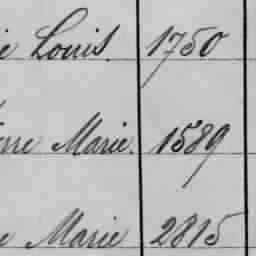 ie Louis. 1750
erre Marie. 1589
e Marie 2815